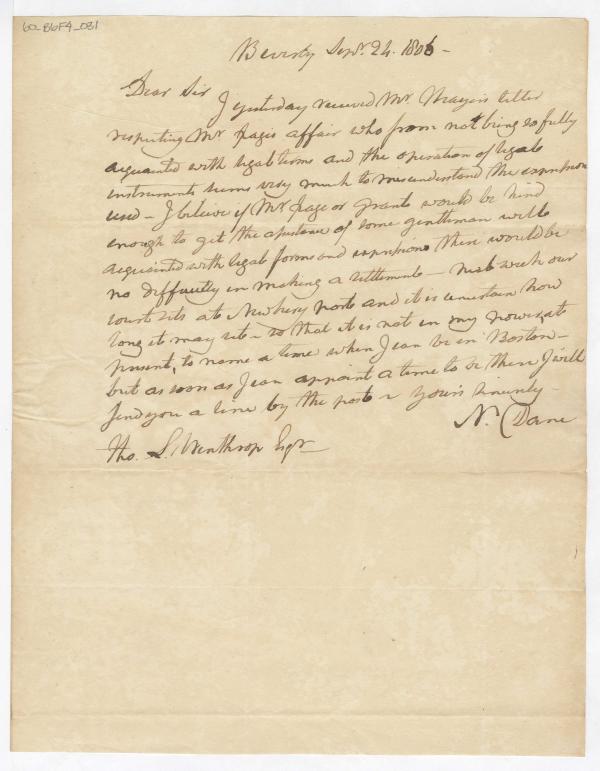 60_B6F4_081
Beverly Sepr. 24. 1806 -
Dear Sir I yesterday received Mr. letter
respecting Mr Pages affair who from not being so fully
acquainted with legal terms and the operation of legal
instruments seems very much to misunderstand the expressions
used - I believe if Mr Page or Grants would be kind
enough to get the assistance of some gentleman well
acquainted with legal forms and expressions there would be
no difficulty in making a settlement - next week our
court sits at Newbury Port and it is uncertain how
long it may sit - so that it is not in my power, at
present, to name a time when I can be in Boston -
but as soon as I can appoint a time to be there I will
send you a line by the post - yours sincerely -
N. Dane
Tho. L. Winthrop Esqr -